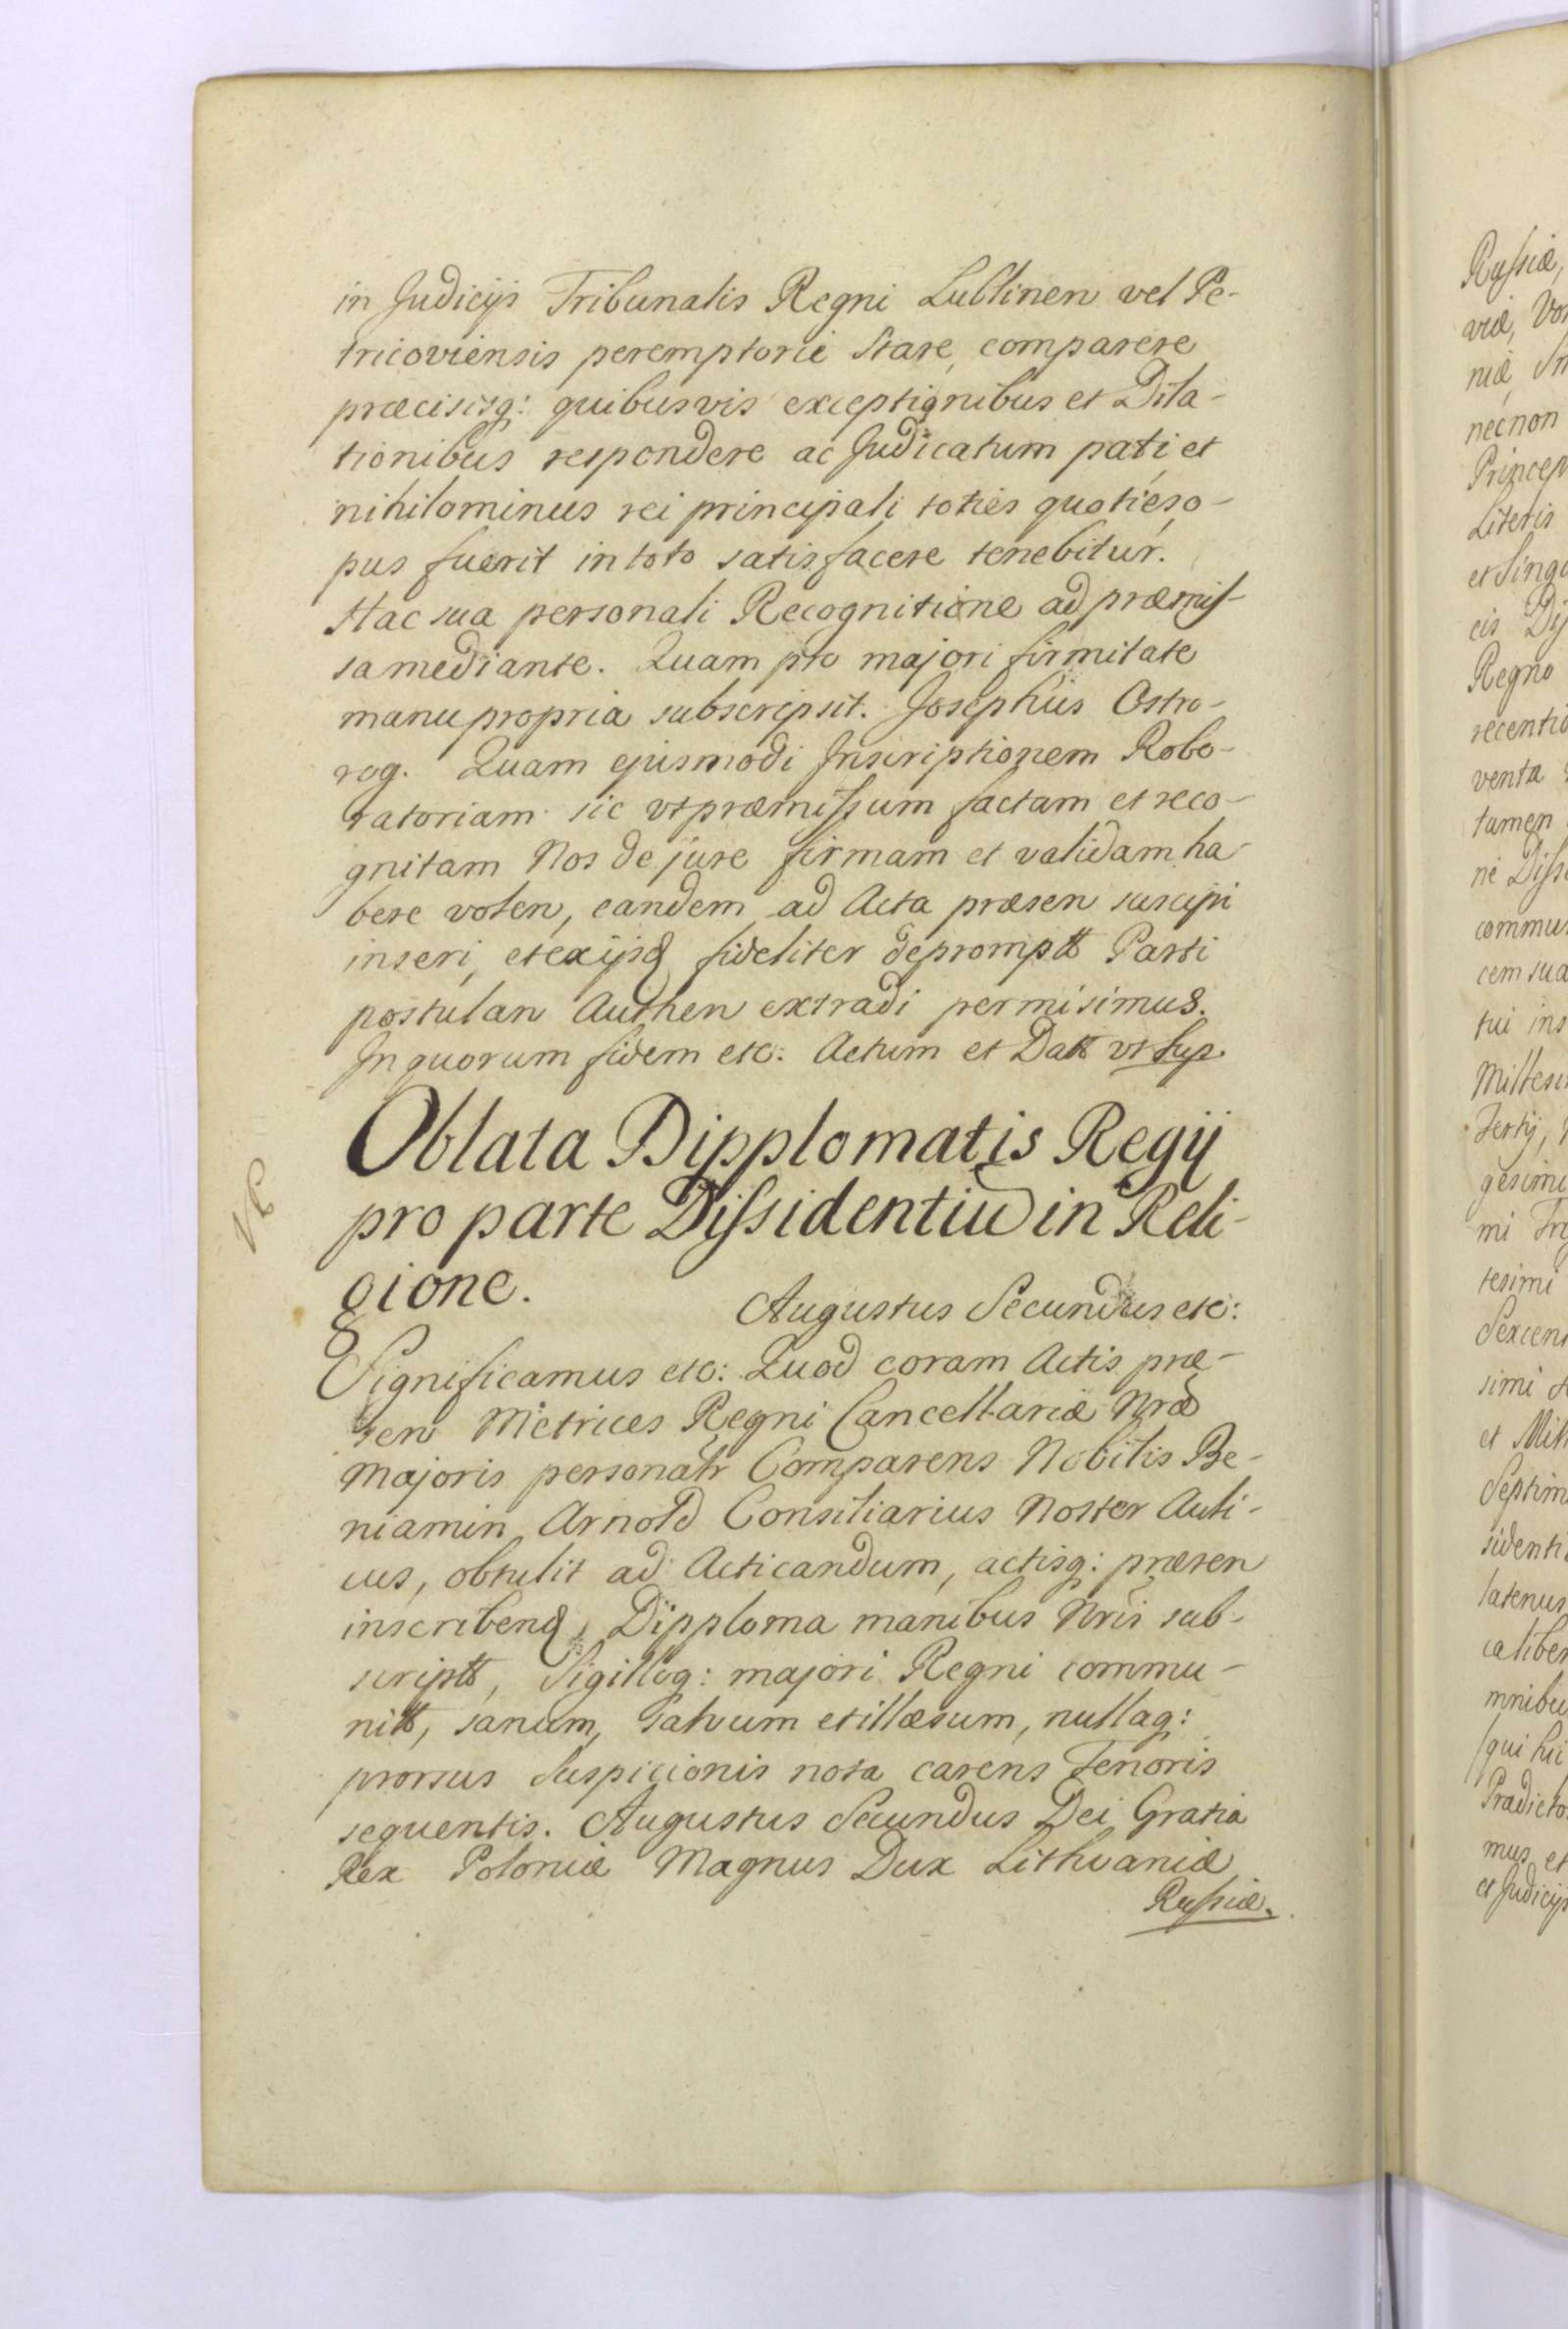 in Judicijs Tribunalis Regni Lublinen vel Pe-
tricoviensis peremptorie Stare, comparere
præcisisq: quibusvis exceptionibus et Dila-
tionibus respondere ac Judicatum pati, et
nihilominus rei principali toties quoties o-
pus fuerit in toto satisfacere tenebitur.
Hac sua personali Recognitione ad præmis-
sa mediante. Quam pro majori firmitate
manu propria subscripsit. Josephus Ostro-
rog. Quam ejusmodi Inscriptionem Robo-
ratoriam sic vt præmissum factam et reco-
gnitam Nos de jure firmam et validam ha
bere volen, eandem ad Acta præsen suscipi
inseri, et ex ijsd fideliter deprompt Parti
postulan Authen extradi permisimus.
In quorum fidem etc: Actum et Datt vt Sup.
Oblata Dipplomatis Regij
pro parte Dissidentiu in Reli-
gione.
Augustus Secundus etc:
Significamus etc: Quod coram Actis præ-
sen Metrices Regni Cancellariæ Nræ
Majoris personalr Comparens Nobilis Be-
niamin Arnold Consiliarius Noster Auli-
cus, obtulit ad Acticandum, actisq: præsen
inscribend, Dipploma manibus Nris sub-
scriptt, Sigilloq: majori Regni commu-
nitt, sanum, salvum et illæsum, nullaq:
prorsus Suspicionis nota carens Tenoris
sequentis. Augustus Secundus Dei Gratia
Rex Poloniæ Magnus Dux Lithvaniæ
Russiæ.
Russiæ,
viæ, Vo
niæ,
necnon
Princep
Literis
et Singu
cis Di
Regno
recentio
venta
tamen
ne Diss
commu
cem sua
tui ins
Milles
Tertij,
gesimi
mi
tesimi
Sexcen
simi
et Mill
Septim
sidenti
latenus
ca liber
mnibu
qui hic
Prædicto
mus, et
et Judicijs